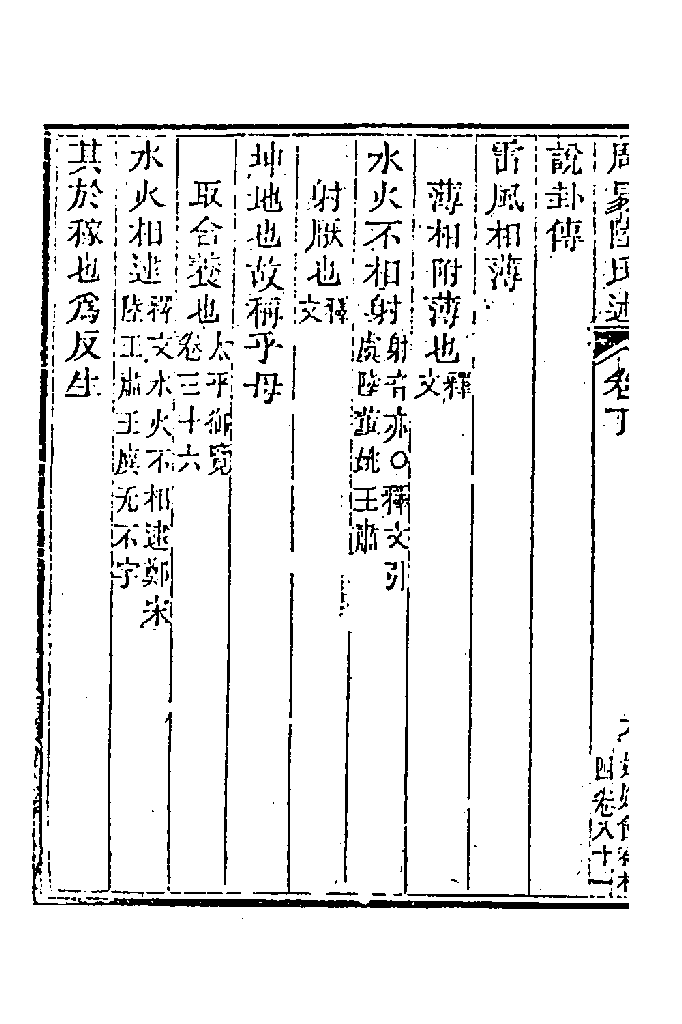 周易陸氏述 卷下
四卷八十一
說卦傳
雷風相薄
薄相附薄也釋文
水火不相射射音亦○釋文引虞陸董姚王肅
射厭也釋文
坤地也故稱乎母
取含養也太平御覽卷三十六
水火相逮釋文水火不相逮鄭宋陸王肅王廙无不字
其於稼也爲反生